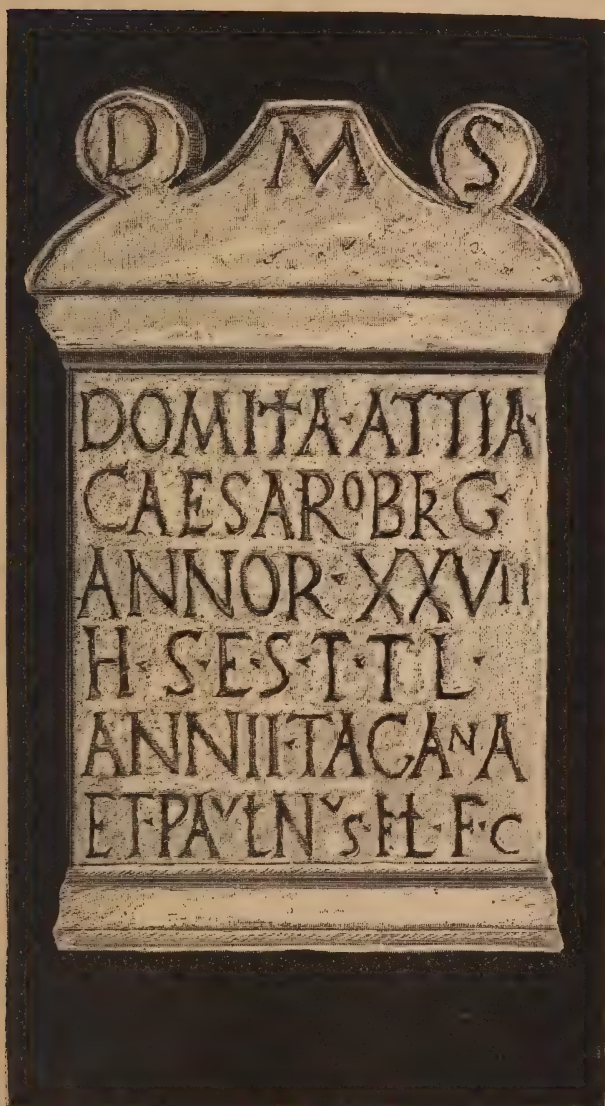 D M S
DOMITIA·ATTIA·
CAESAROBRIG
ANNOR·XXVII
H·S·E·S·T·T·L·
ANNII·TAGANA
ET·PAVLINVS·FIL·F·C